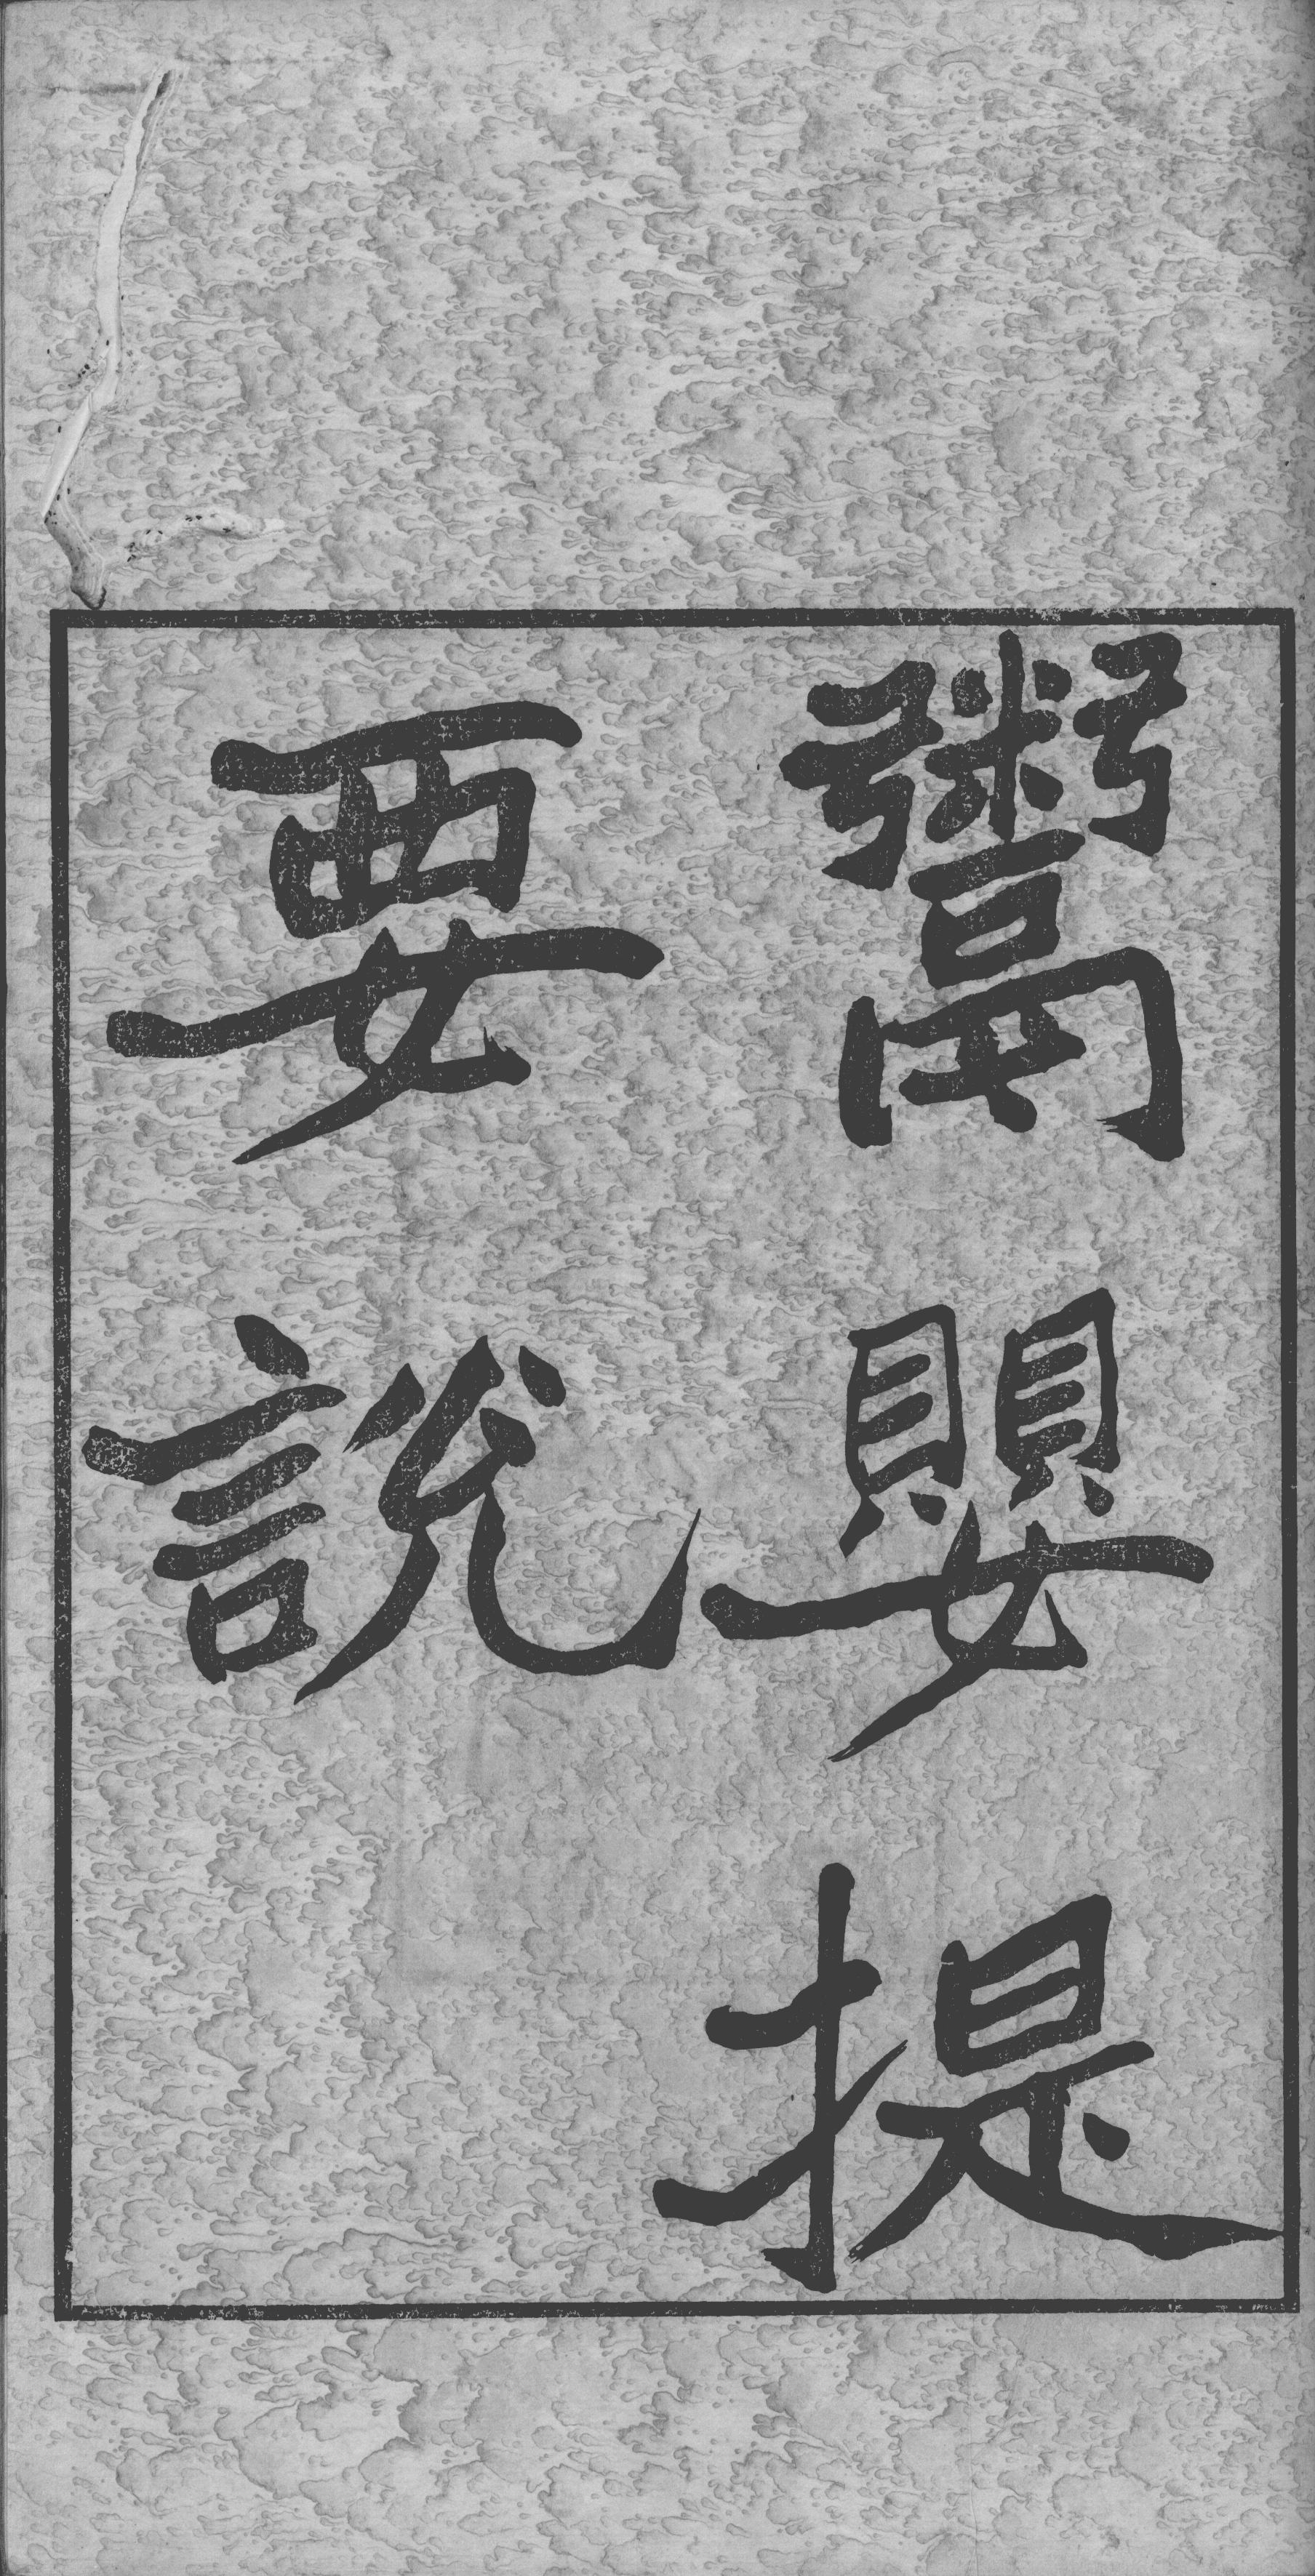 鬻嬰提
要說